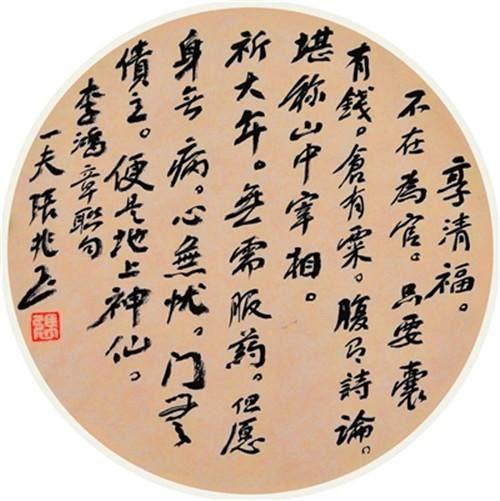 享清福。
不在為官。只要囊
有錢。倉有粟。腹有詩論。
堪称山中宰相。
祈大年。無需服药。但愿
身无病。心無忧。门无
債主。便是地上神仙。
李鴻章聯句
一夫張兆